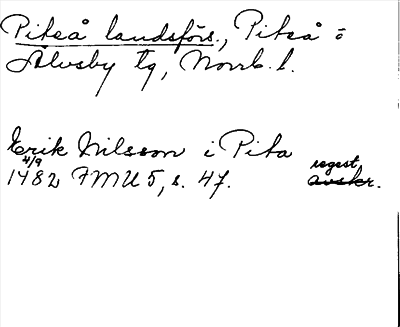 Piteå landsförs., Piteå o
Älvsby tg, Norrb. l.
Erik Nilsson i Pita
4/9
1482 FMU 5, s. 47.
regest
avskr.